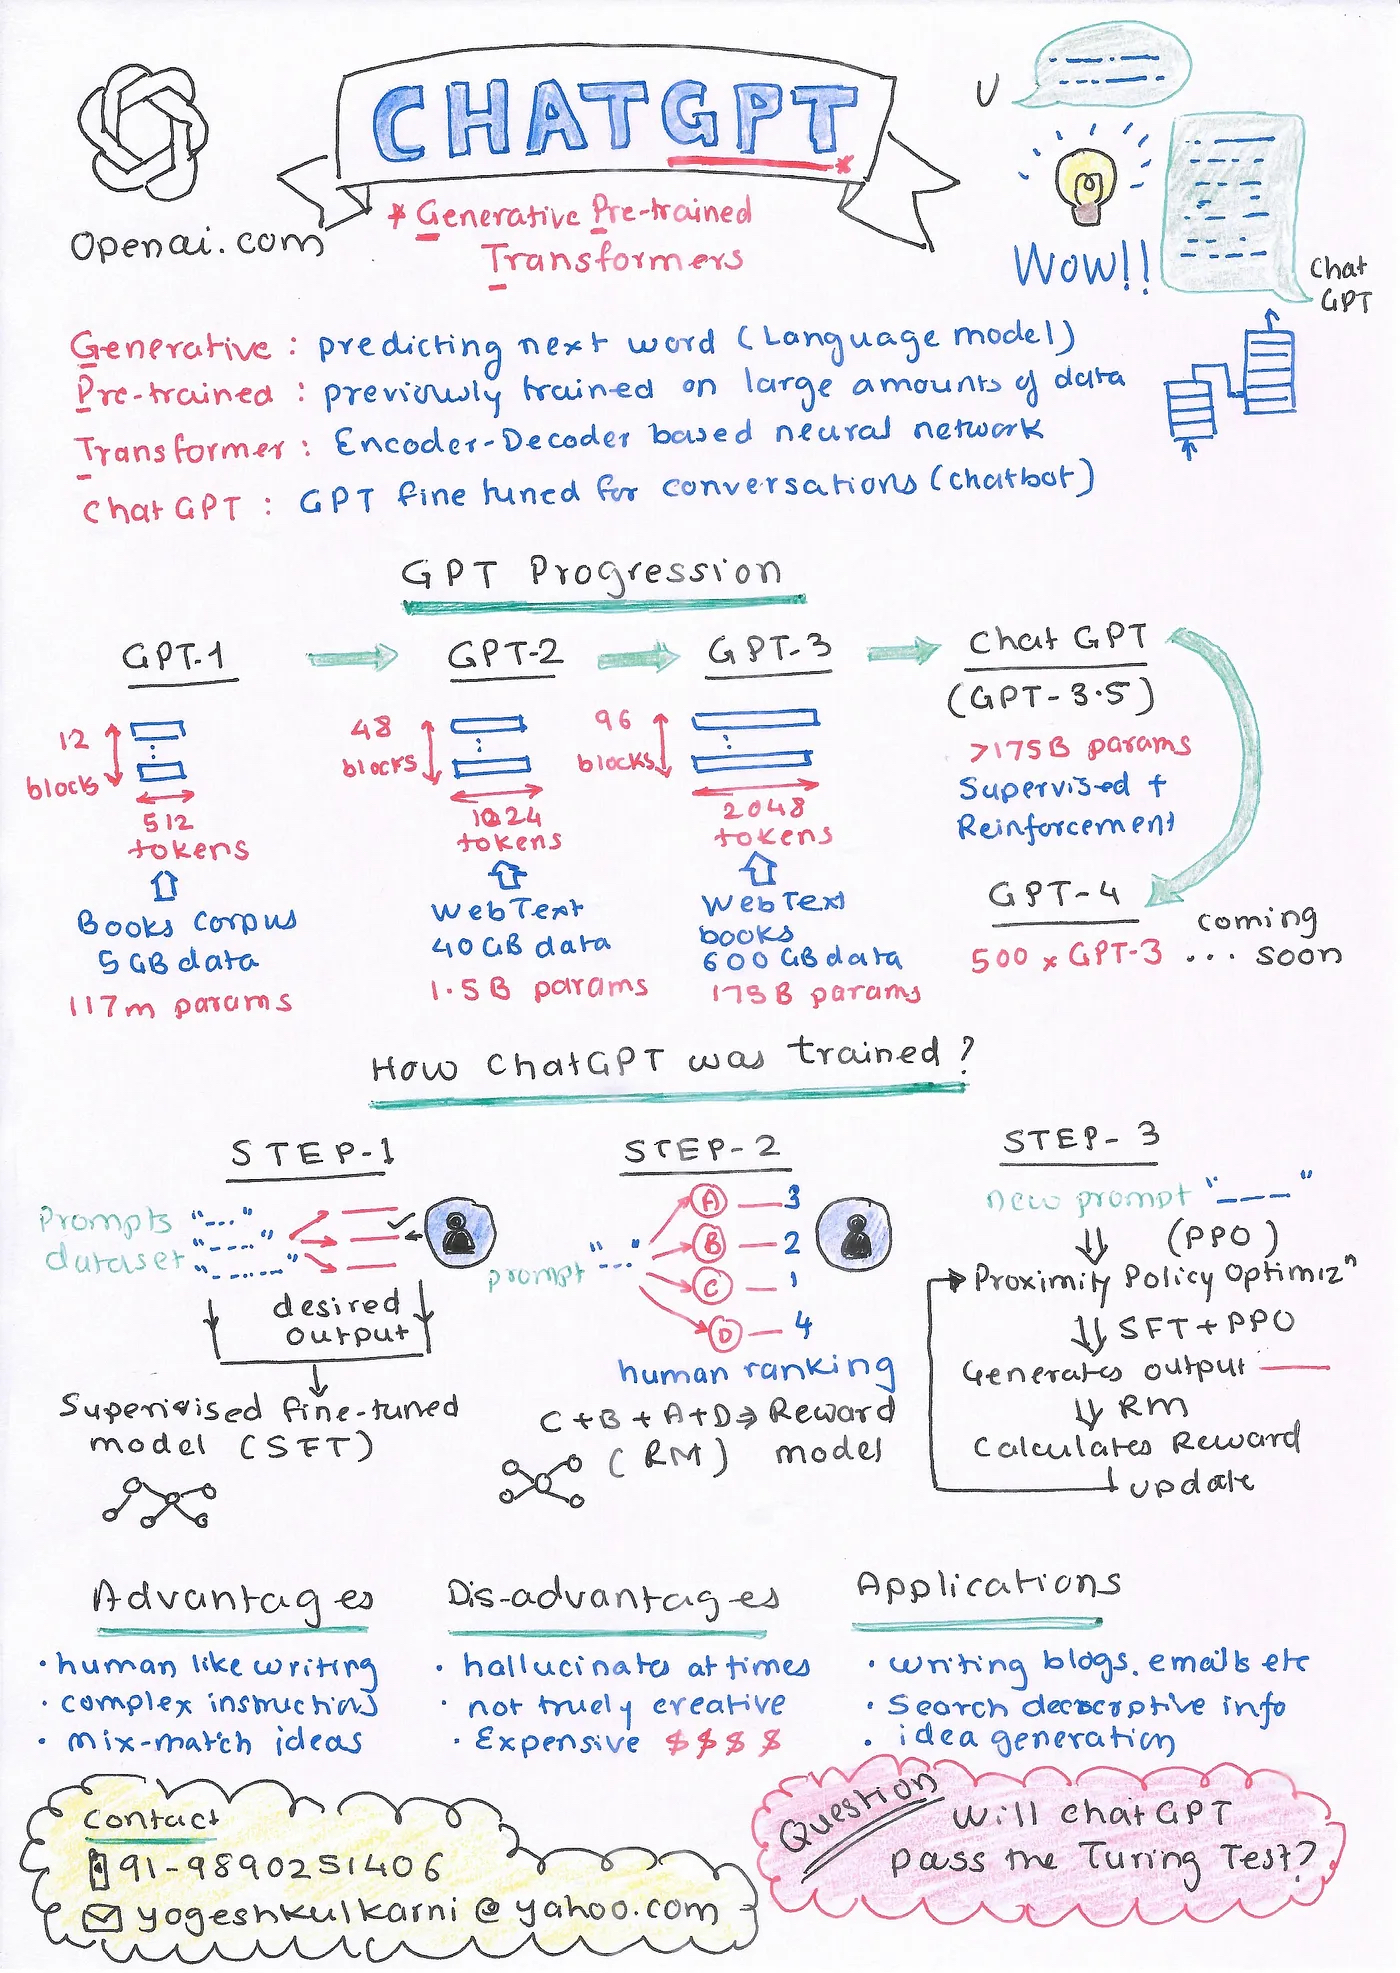 CHATGPT *
* Generative Pre-trained
Transformers
Openai.com
U
Wow!!
Chat
GPT
Generative : predicting next word (Language model)
Pre-trained : previously trained on large amounts of data
Transformer : Encoder-Decoder based neural network
ChatGPT : GPT fine tuned for conversations (chatbot)
GPT Progression
GPT-1
12
blocks
512
tokens
Books Corpus
5 GB data
117m params
GPT-2
48
blocks
1024
tokens
WebText
40 GB data
1.5B params
GPT-3
96
blocks
2048
tokens
WebText
books
600 GB data
175B params
Chat GPT
(GPT-3.5)
>175B params
Supervised +
Reinforcement
GPT-4
500 x GPT-3
coming
... soon
How ChatGPT was trained?
STEP-1
Prompts
dataset
desired
output
Supervised fine-tuned
model (SFT)
STEP-2
prompt
A 3
B 2
C 1
D 4
human ranking
C+B+A+D⇒ Reward
(RM) model
STEP-3
new prompt "----"
(PPO)
Proximity Policy Optimizⁿ
SFT+PPO
Generates output
RM
Calculates Reward
update
Advantages
• human like writing
• complex instructions
• mix-match ideas
Dis-advantages
• hallucinates at times
• not truely creative
• Expensive $$$$
Applications
• writing blogs, emails etc
• Search descriptive info
• idea generation
Contact
91-9890251406
yogeshkulkarni@yahoo.com
Question
Will chatGPT
pass the Turing Test?